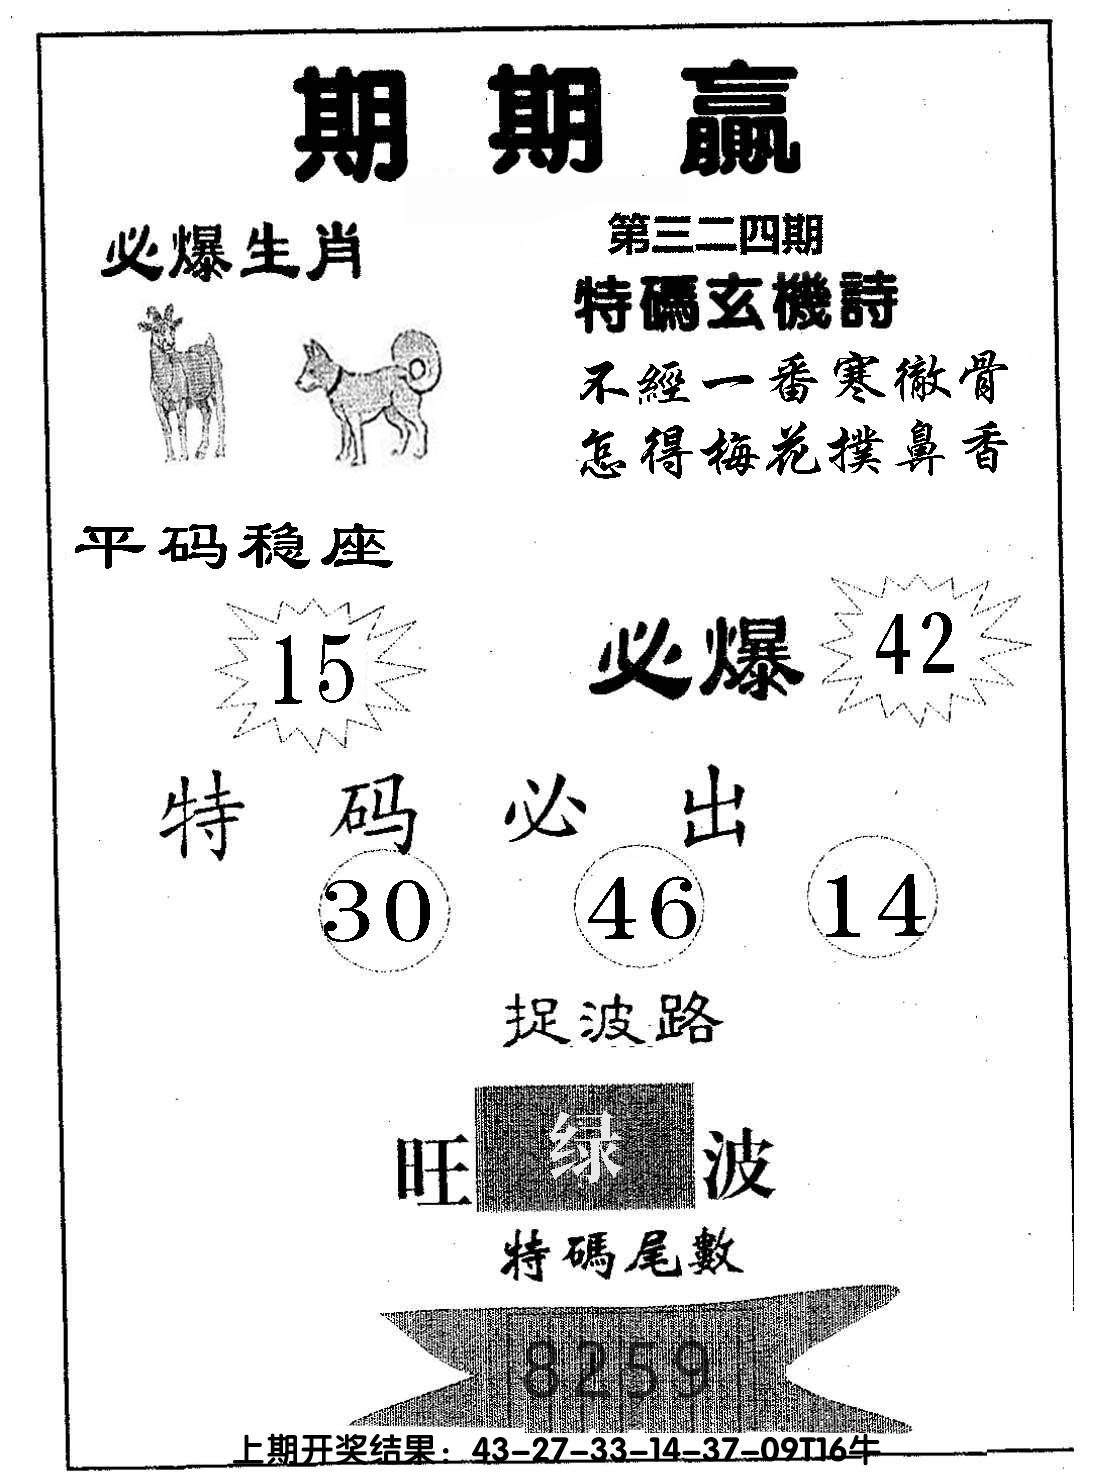 期期贏
必爆生肖
第三二四期
特碼玄機詩
不經一番寒徹骨
怎得梅花撲鼻香
平码稳座
15
必爆
42
特码必出
30 46 14
捉波路
旺绿波
特碼尾數
8259
上期开奖结果：43-27-33-14-37-09T16牛